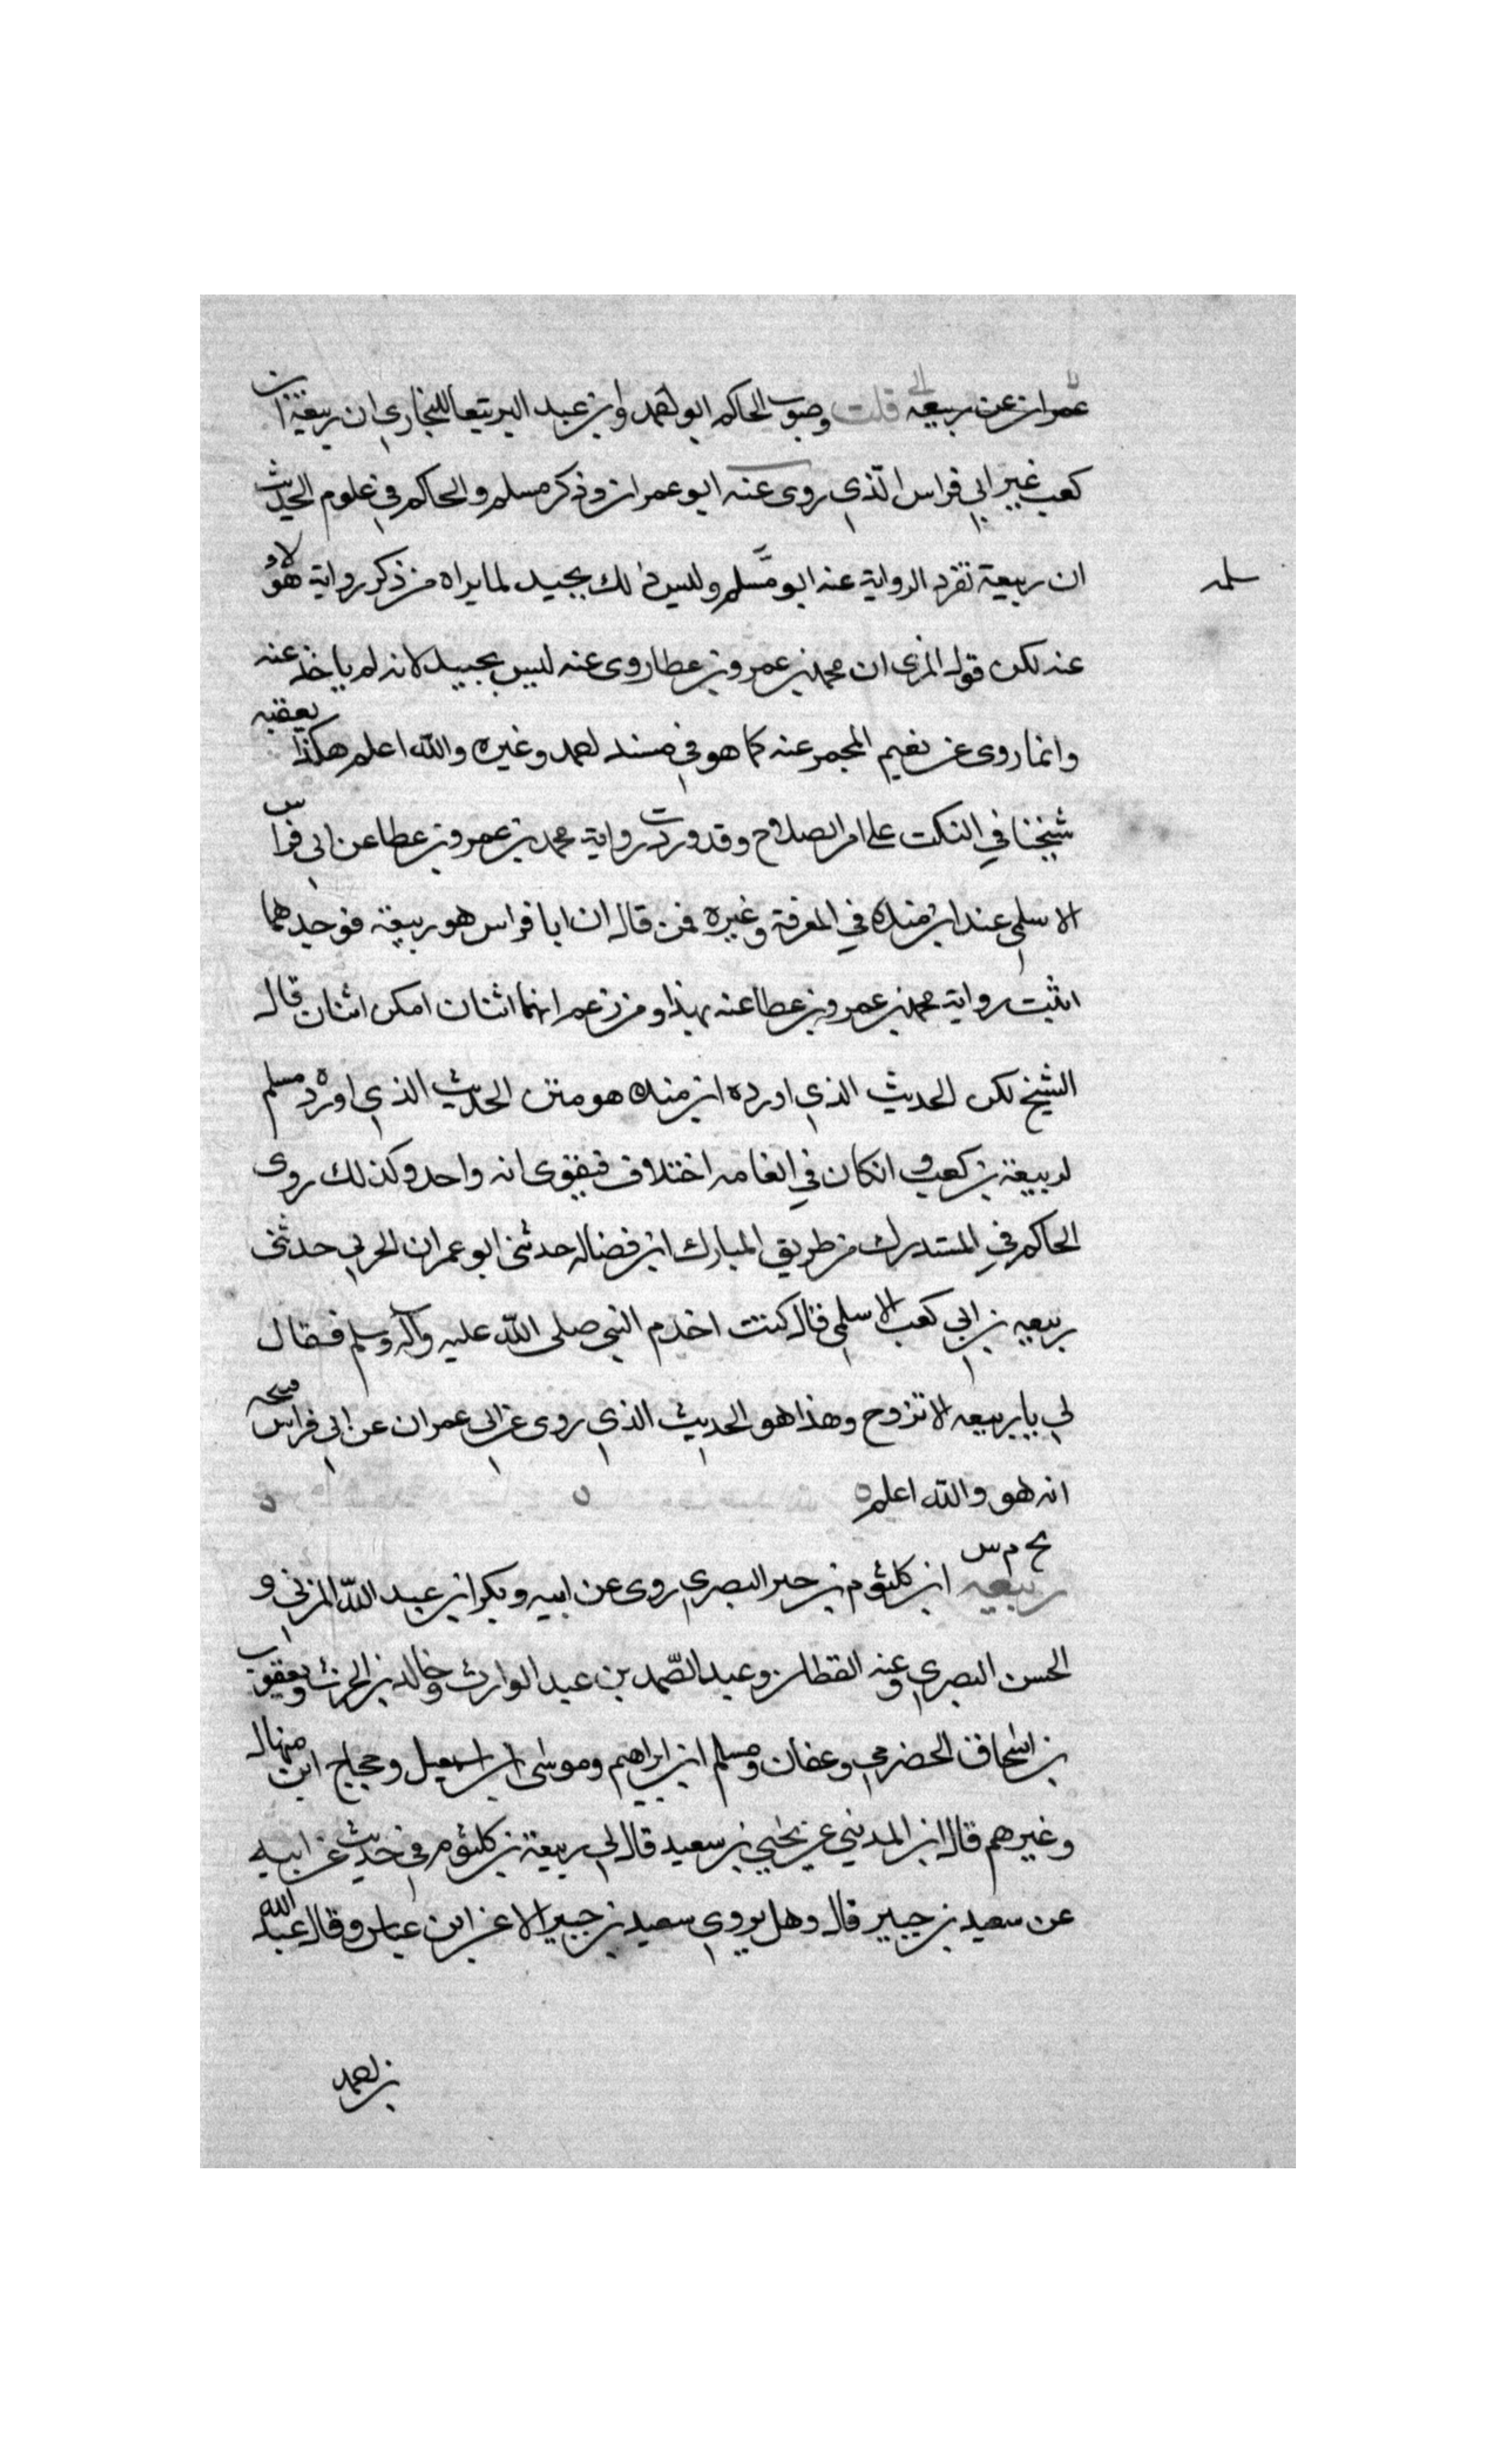 عمران عن ربيعه الى قلت وصوب الحاكم ابو احمد وابن عبد البر تبعا للبخاري ان ربيعة ابن
كعب غير ابي فراس الذي روى عنه ابو عمران وذكر مسلم والحاكم في علوم الحديث
ان ربيعة تفرد الرواية عنه ابو مسلم وليس ذلك بجيد لما يراه من ذكر رواية هؤلاء
سلمه
عنه لكن قول المزى ان محمد بن عمرو بن عطا روى عنه ليس بجيد لانه لم ياخذ عنه
وانما روى عن نعيم المجمر عنه كما هو في مسند احمد وغيره والله اعلم هكذا يعقبه
شيخنا في النكت على ابن الصلاح وقد وردت رواية محمد بن عمرو بن عطا عن ابي فراس
الاسلمي عند ابن منده في المعرفة وغيره فمن قال ان ابا فراس هو ربيعة فوحدهما
اثبت رواية محمد بن عمرو بن عطا عنه بهذا ومن زعم انهما اثنان امكن اثنان قال
الشيخ لكن الحديث الذي اورده ابن منده هو متن الحديث الذي اورده مسلم
لربيعة بن كعب وانكان في الفاظه اختلاف فيقوى انه واحد وكذلك روى
الحاكم في المستدرك من طريق المبارك ابن فضاله حدثني ابو عمران الحربي حدثني
ربيعه بن ابي كعب الاسلمي قال كنت اخدم النبي صلى الله عليه وآله وسلم فقال
لي يا ربيعه الا تزوج وهذا هو الحديث الذي روى عن ابي عمران عن ابي فراس فصح
انه هو والله اعلم
بخ م س
ربيعه ابن كلثوم بن جبر البصري روى عن ابيه وبكر ابن عبد الله المزني و
الحسن البصري وعنه القطان وعبد الصمد بن عبد الوارث وخالد بن الحرث ويعقوب
بن اسحاق الحضرمي وعفان ومسلم ابن ابراهيم وموسى ابن اسمعيل وحجاج ابن منهال
وغيرهم قال ابن المديني عن يحيى بن سعيد قال لي ربيعة بن كلثوم في حديث عن ابيه
عن سعيد بن جبير قال وهل يروي سعيد بن جبير الا عن ابن عباس وقال عبد الله
بن احمد